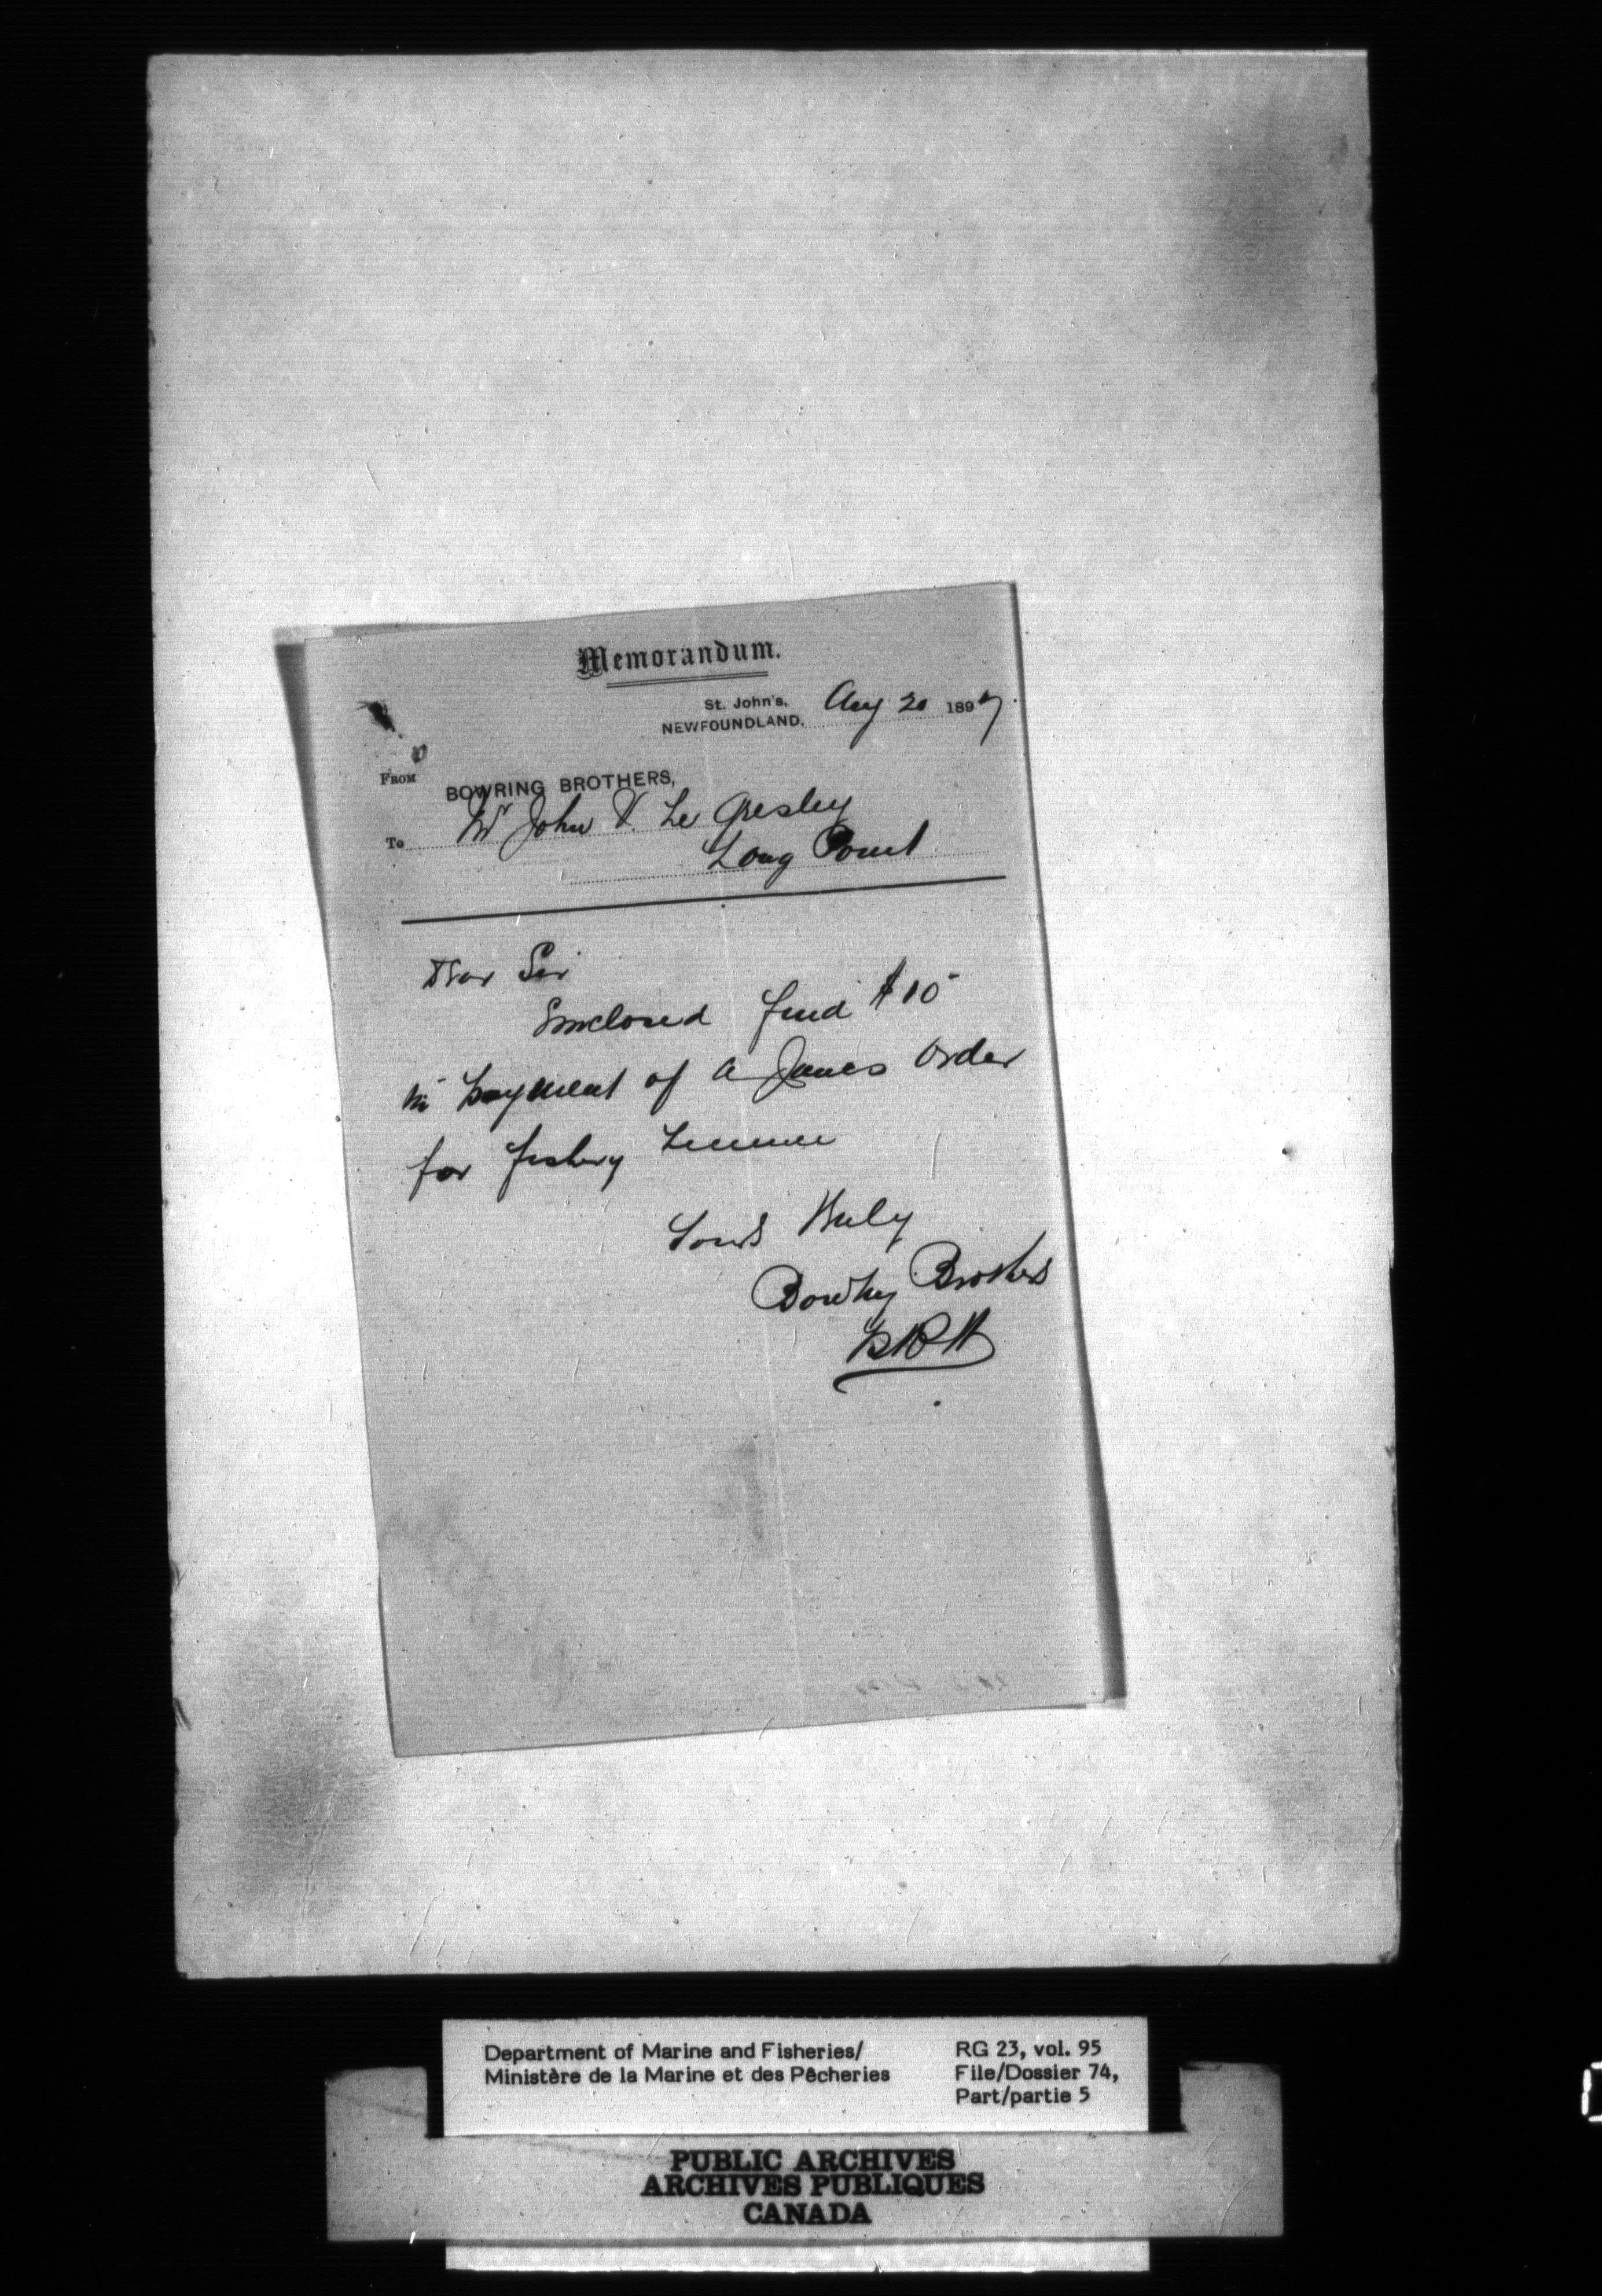 Memorandum.
St. John's,
NEWFOUNDLAND, Aug 20 1897.
FROM
BOWRING BROTHERS,
To Mr John V. Le Gresley
Long Point
Dear Sir
Enclosed find $10
in payment of a Janes Order
for fishery License
Yours truly
Bowring Brothers
Department of Marine and Fisheries/
Ministère de la Marine et des Pêcheries
RG 23, vol. 95
File/Dossier 74,
Part/partie 5
PUBLIC ARCHIVES
ARCHIVES PUBLIQUES
CANADA